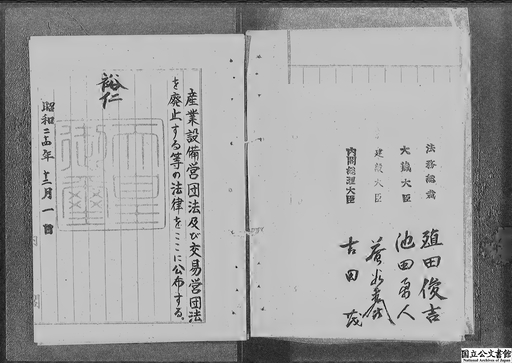 産業設備営団法及び交易営団法
を廃止する等の法律をここに公布する。
裕仁
天皇
御璽
昭和二十四年十二月一日
法務総裁
殖田俊吉
大蔵大臣
池田勇人
建設大臣
益谷秀次
内閣総理大臣
吉田茂
国立公文書館
National Archives of Japan